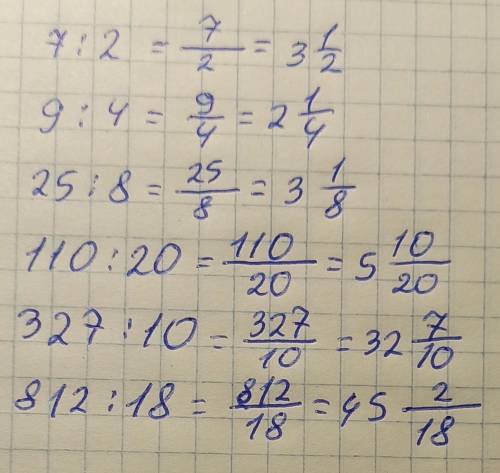 7 : 2 = 7/2 = 3 1/2
9 : 4 = 9/4 = 2 1/4
25 : 8 = 25/8 = 3 1/8
110 : 20 = 110/20 = 5 10/20
327 : 10 = 327/10 = 32 7/10
812 : 18 = 812/18 = 45 2/18